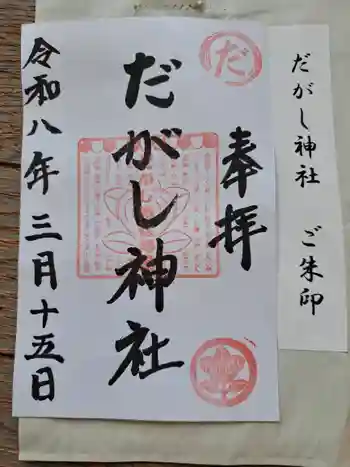 だがし神社 ご朱印
だ
奉拝
だがし神社
令和八年三月十五日